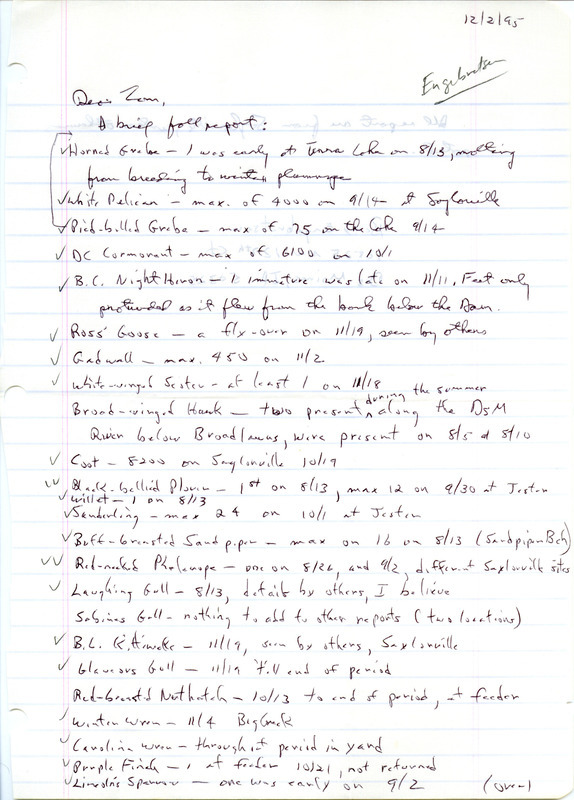 12/2/95
Engebretsen
Dear Tom,
A brief fall report:
Horned Grebe - 1 was early at Terra Lake on 8/13, molting
from breeding to winter plumage
White Pelican - max. of 4000 on 9/14 at Saylorville
Pied-billed Grebe - max of 75 on the lake 9/14
DC Cormorant - max of 6100 on 10/1
B.C. Night Heron - 1 immature was late on 11/11. Feet only
protruded as it flew from the bank below the Dam.
Ross' Goose - a fly-over on 11/19, seen by others
Gadwall - max. 450 on 11/2
White-winged Scoter - at least 1 on 11/18
Broad-winged Hawk - two present during the summer along the DSM
River below , were present on 8/5 & 8/10
Coot - 8200 on Saylorville 10/19
Black-bellied Plover - 1st on 8/13, max 12 on 9/30 at Jester
Willet - 1 on 8/13
Sanderling - max 24 on 10/1 at Jester
Buff-breasted Sandpiper - max on 16 on 8/13 (Sandpiper Bch)
Red-necked Phalarope - one on 8/26, and 9/2, different Saylorville sites
Laughing Gull - 8/13, details by others, I believe
Sabines Gull - nothing to add to other reports (two locations)
B.L. Kittiwake - 11/19, seen by others, Saylorville
Glaucous Gull - 11/19 till end of period
Red-breasted Nuthatch - 10/13 to end of period, at feeder
Winter Wren - 11/4 Big Creek
Carolina Wren - throughout period in yard
Purple Finch - 1 at feeder 10/21, not returned
Lincoln's Sparrow - one was early on 9/2 (over)